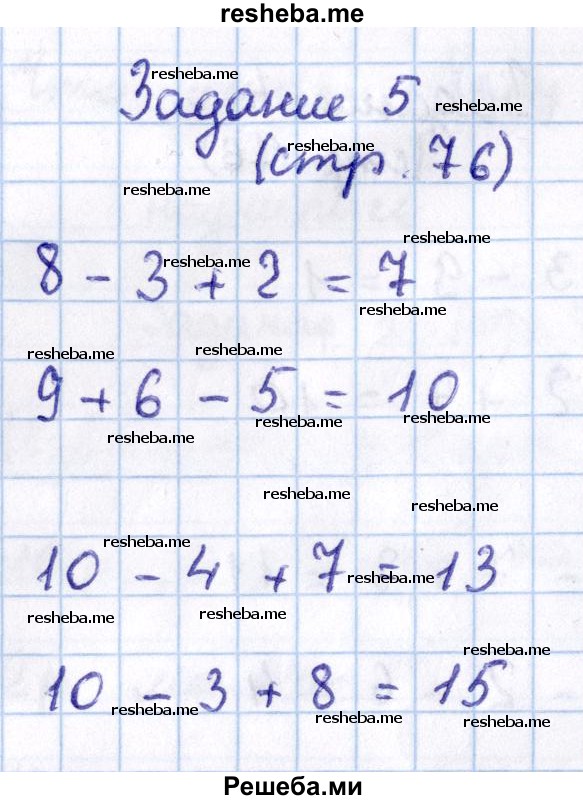 resheba.me
resheba.me
Задание 5
resheba.me
resheba.me
(стр. 76)
resheba.me
resheba.me
resheba.me
8 - 3 + 2 = 7
resheba.me
resheba.me
resheba.me
9 + 6 - 5 = 10
resheba.me
resheba.me
resheba.me
resheba.me
resheba.me
10 - 4 + 7 = 13
resheba.me
resheba.me
resheba.me
resheba.me
10 - 3 + 8 = 15
resheba.me
resheba.me
resheba.me
Решеба.ми